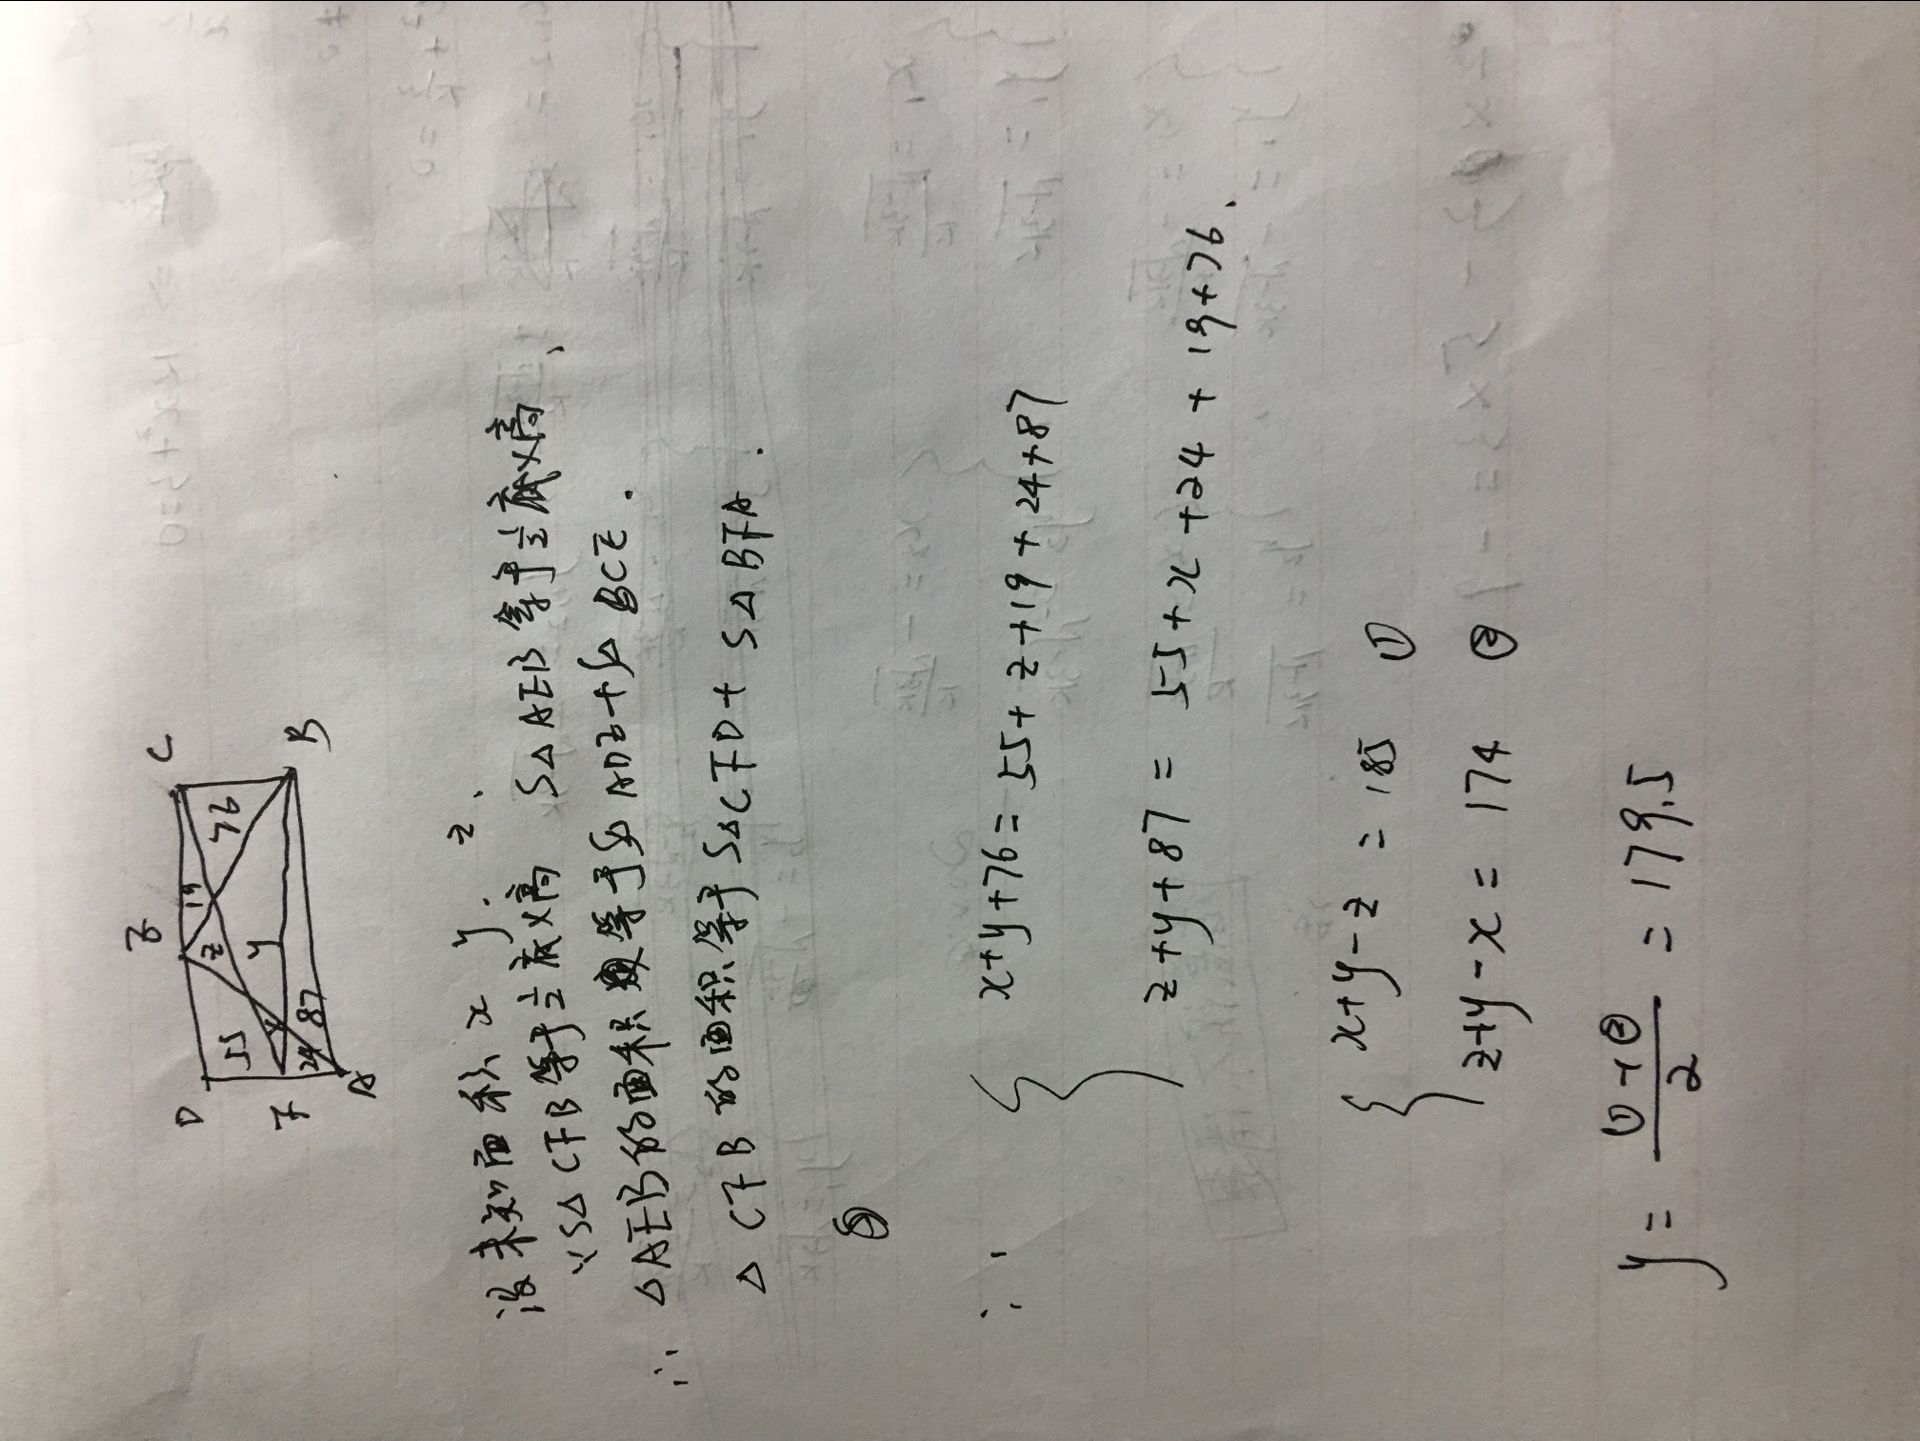 E
D
C
55
z
19
76
F
x
y
24
87
A
B
设未知面积、x y. z.
∵S△CFB等于½底×高 S△AEB等于½底×高、
∴ △AEB的面积等于S△ADE+S△BCE.
△CFB的面积等于S△CFD+S△BFA.
∴ { x+y+76=55+z+19+24+87
z+y+87 = 55+x+24+19+76.
{ x+y-z = 185 ①
z+y-x = 174 ②
y = (①+②)/2 = 179.5